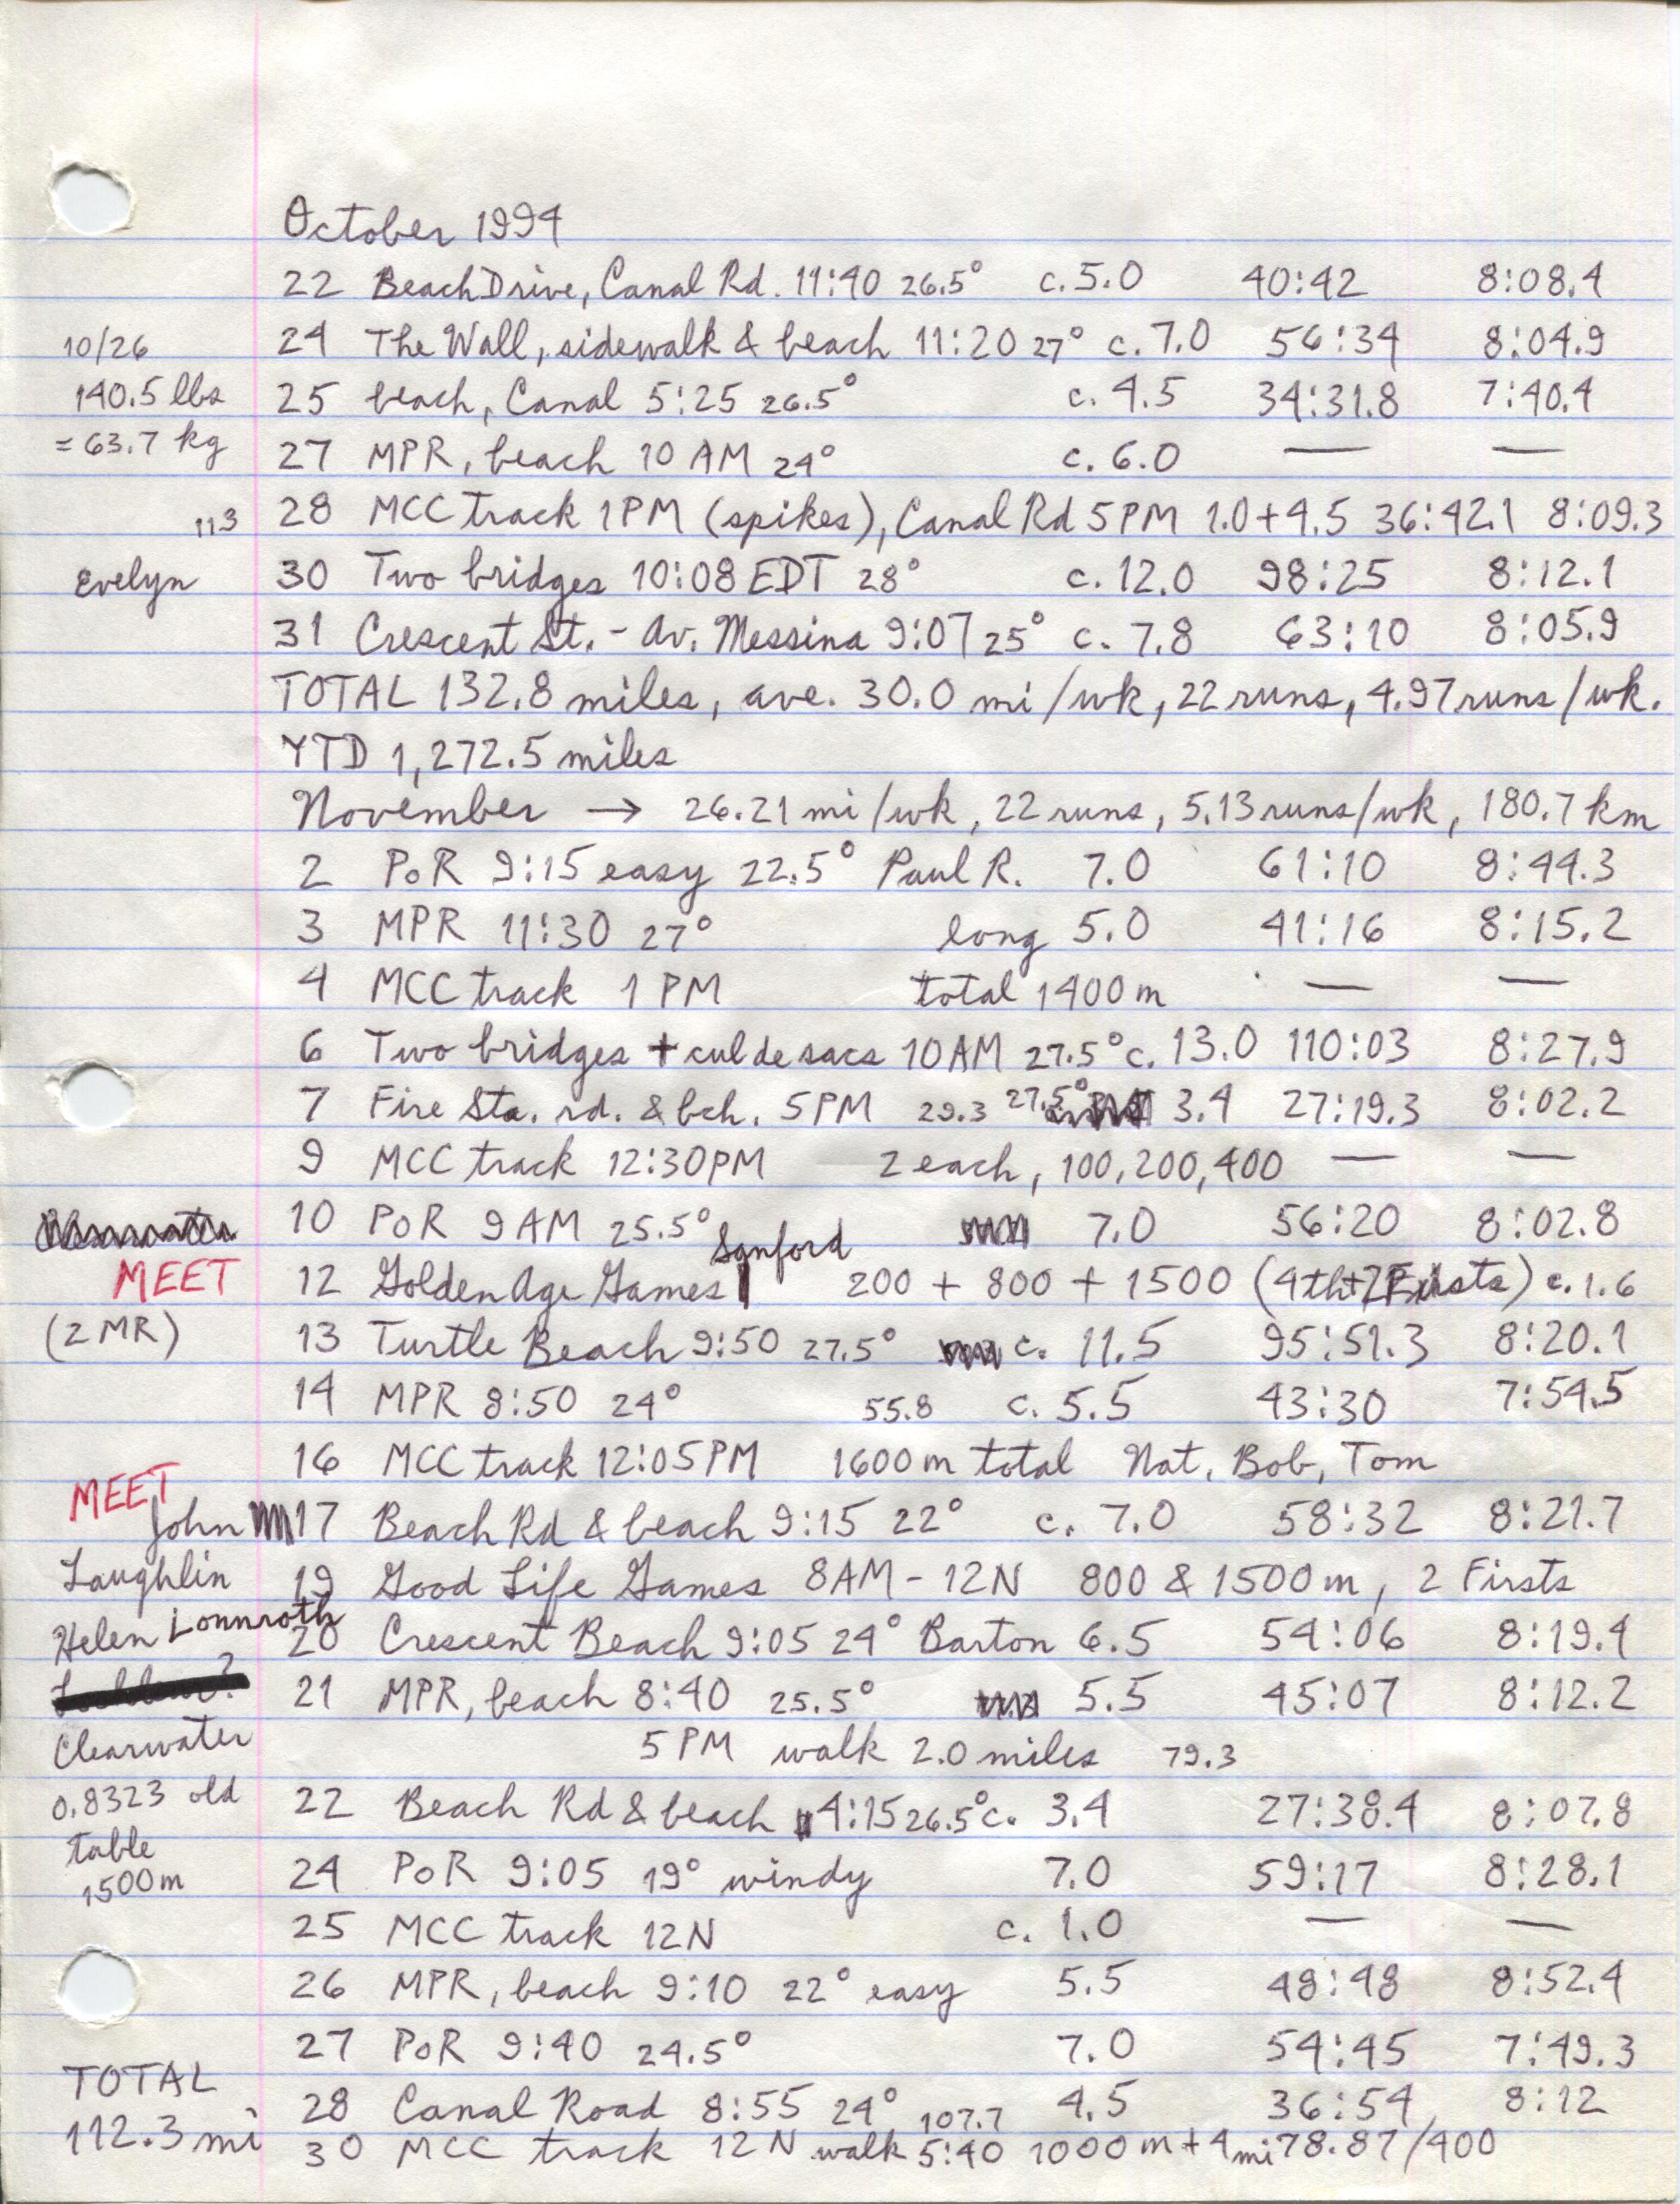 October 1994
22 Beach Drive, Canal Rd. 11:40 26.5° c. 5.0 40:42 8:08.4
10/26 24 The Wall, sidewalk & beach 11:20 27° c. 7.0 56:34 8:04.9
140.5 lbs 25 beach, Canal 5:25 26.5° c. 4.5 34:31.8 7:40.4
= 63.7 kg 27 MPR, beach 10 AM 24° c. 6.0 — —
113 28 MCC track 1PM (spikes), Canal Rd 5PM 1.0+4.5 36:42.1 8:09.3
Evelyn 30 Two bridges 10:08 EDT 28° c. 12.0 98:25 8:12.1
31 Crescent St. - Av. Messina 9:07 25° c. 7.8 63:10 8:05.9
TOTAL 132.8 miles, ave. 30.0 mi/wk, 22 runs, 4.97 runs/wk.
YTD 1,272.5 miles
November → 26.21 mi/wk, 22 runs, 5.13 runs/wk, 180.7 km
2 PoR 9:15 easy 22.5° Paul R. 7.0 61:10 8:44.3
3 MPR 11:30 27° long 5.0 41:16 8:15.2
4 MCC track 1 PM total 1400 m — —
6 Two bridges + cul de sacs 10AM 27.5° c. 13.0 110:03 8:27.9
7 Fire Sta. rd. & bch. 5PM 29.3 27.5° 3.4 27:19.3 8:02.2
9 MCC track 12:30PM 2 each, 100, 200, 400 — —
10 PoR 9 AM 25.5° 7.0 56:20 8:02.8
MEET 12 Golden Age Games Sanford 200 + 800 + 1500 (4th+2Firsts) c. 1.6
(2 MR) 13 Turtle Beach 9:50 27.5° c. 11.5 95:51.3 8:20.1
14 MPR 8:50 24° 55.8 c. 5.5 43:30 7:54.5
16 MCC track 12:05PM 1600 m total Nat, Bob, Tom
MEET
John 17 Beach Rd & beach 9:15 22° c. 7.0 58:32 8:21.7
Laughlin 19 Good Life Games 8AM - 12N 800 & 1500 m, 2 Firsts
Helen Lonnroth 20 Crescent Beach 9:05 24° Barton 6.5 54:06 8:19.4
21 MPR, beach 8:40 25.5° 5.5 45:07 8:12.2
Clearwater 5 PM walk 2.0 miles 79.3
0.8323 old 22 Beach Rd & beach 4:15 26.5° c. 3.4 27:38.4 8:07.8
table
1500 m 24 PoR 9:05 19° windy 7.0 59:17 8:28.1
25 MCC track 12N c. 1.0 — —
26 MPR, beach 9:10 22° easy 5.5 48:48 8:52.4
27 PoR 9:40 24.5° 7.0 54:45 7:49.3
TOTAL 28 Canal Road 8:55 24° 107.7 4.5 36:54 8:12
112.3 mi 30 MCC track 12N walk 5:40 1000 m + 4 mi 78.87/400